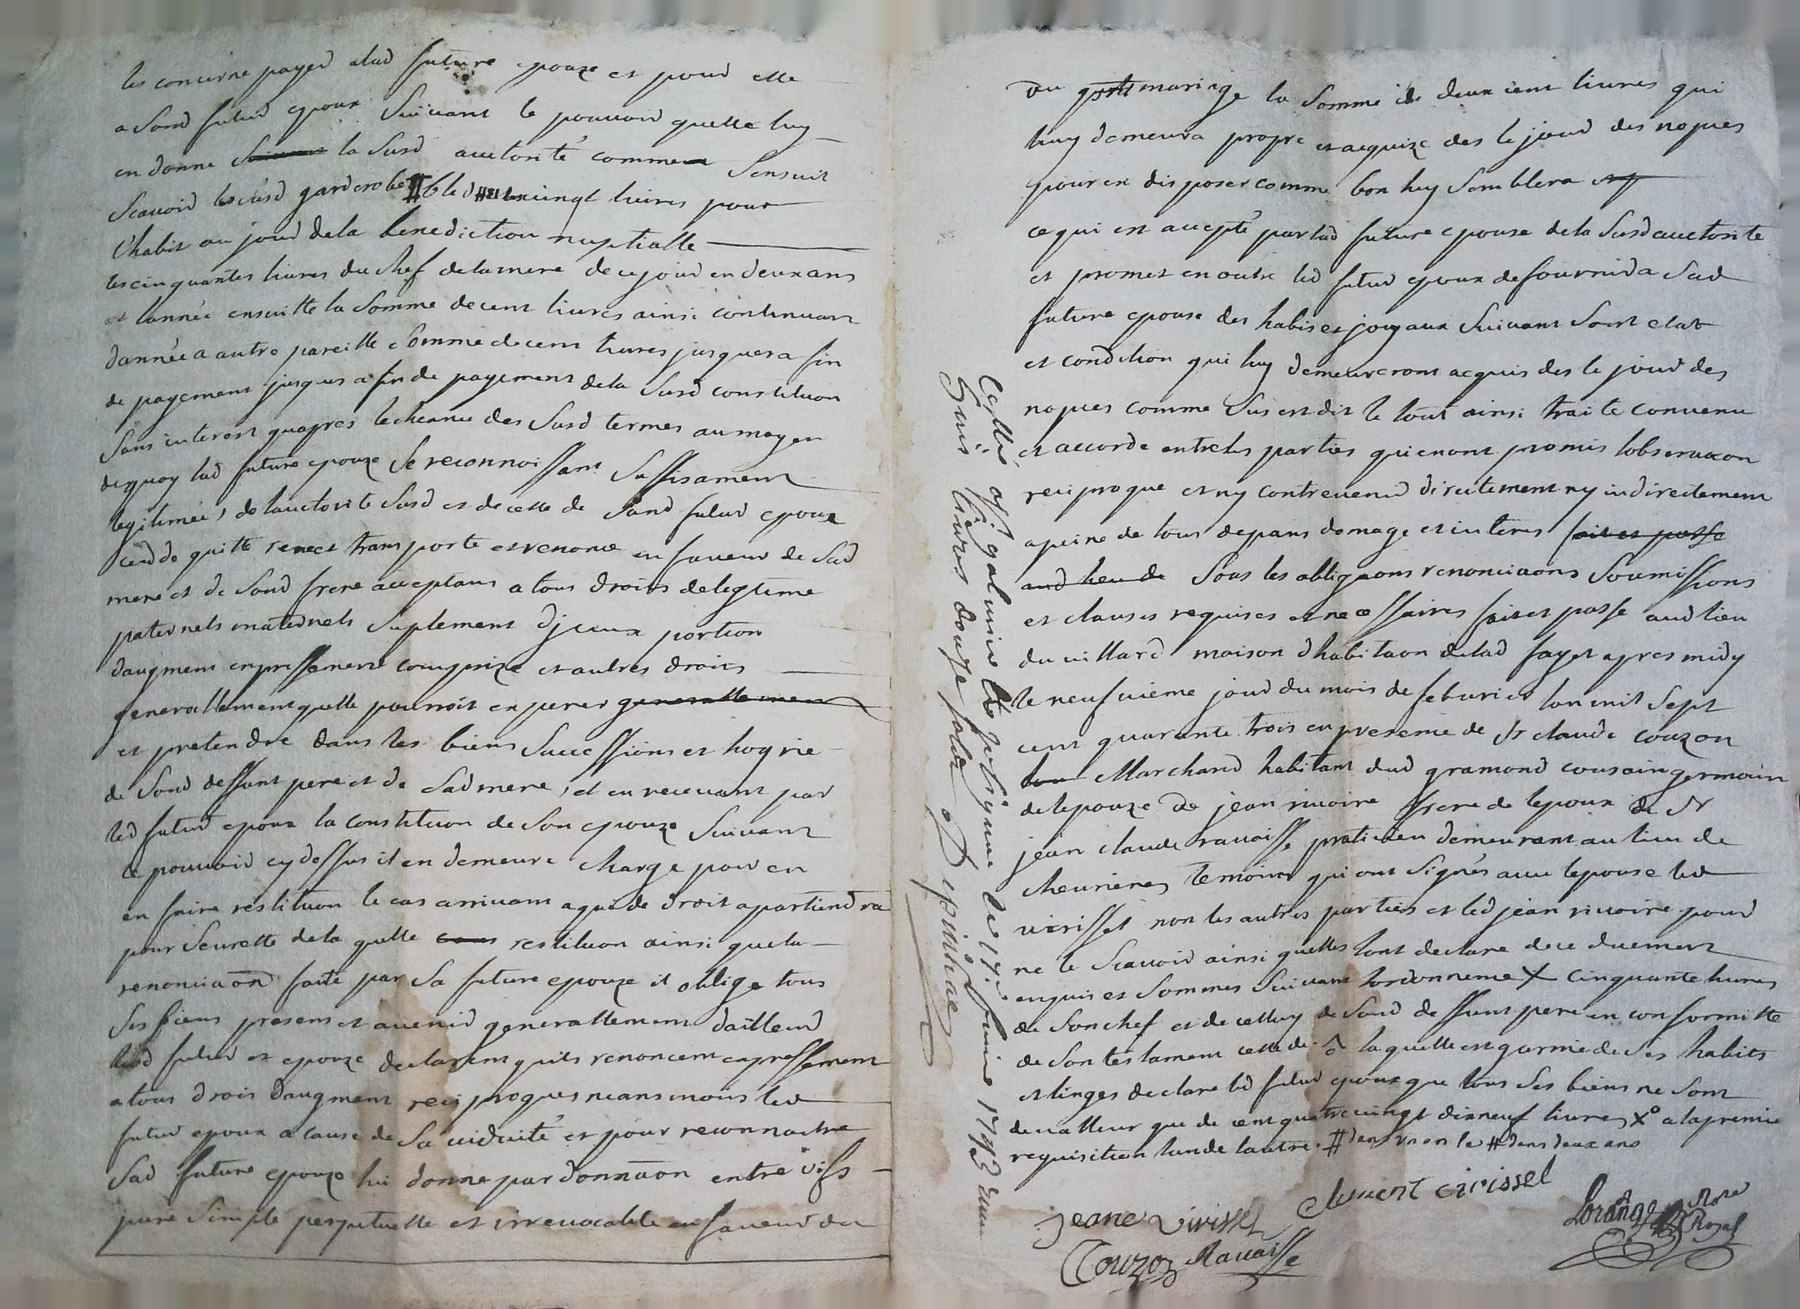 les concerne payer alad future epouze et pour elle
a sond futur epoux suivant le pouvoir quelle luy
en donne la susd auctorité comme sensuit
scavoir les susd garderobe # bled # vingt livres pour
l'habit au jour dela benediction nuptialle
les cinquantes livres du chef delamere dece jour en deux ans
et lannée ensuitte la somme decent livres ainsi continuant
dannée a autre pareille somme decent livres jusques a fin
de payement jusques a fin de payement dela susd constitution
sans interest quapres lecheance des susd termes au moyen
dequoy lad future epouze se reconnoissant suffisament
legitimée, de lauctorite susd et decelle de sond futur epoux
cedde quitte remet transporte et renonce en faveur de sad
mere et de sond frere acceptans a tous droits delegitime
paternels maternels suplement djceux portion
daugment expressement comprize et autres droits
generallement quelle pourroit esperer generallement
et pretendre dans les biens successions et hoyrie
de sond deffunt pere et de sad mere, et en recevant par
led futur epoux la constitution de son epouze suivant
le pouvoir cy dessus il en demeure charge pour en
en faire restitution le cas arrivant a qui de droit apartiendra
pour seurette dela quelle restitution ainsi quela
renonciaon faite par sa future epouze il oblige tous
ses biens presens et avenir generallement dailleur
led futur et epouze declarent quils renoncent expressement
a tous drois daugment reciproques neansmoins led
futur epoux a cause de sa viduité et pour reconnoitre
sad future epouze lui donne par donnaon entre vifs
pure simple perpetuelle et irrevocable en faveur du
du pnt mariage la somme de deux cent livres qui
luy demeura propre et acquize des le jour des nopces
pour en disposer comme bon luy semblera
ce qui est accepté par lad future epouse dela susd auctorite
et promet en outre led futur epoux de fournir a sad
future epouse des habis et joyaux suivant son etat
et condition qui luy demeureront acquis des le jour des
nopces comme sus est dit le tout ainsi traite convenu
et accorde entre les parties qui en ont promis lobservaon
reciproque et ny contrevenir directement ny indirectement
a peine de tous depans domage et interes fait et passe
aud lieu de sous les obligaons renonciaons soumissions
et clauses requises et necessaires fait et passe aud lieu
du villard maison dhabitaon delad fayet apres midy
le neufvieme jour du mois de febvrier lan mil sept
cent quarante trois en presence de sr claude couzon
Marchand habitant dud gramond cousin germain
de lepouze de jean rivoire frere de lepoux de sr
jean claude ravoisse praticien demeurant au lieu de
chevrieres temoins qui ont signés avec lepouse led
virisset non les autres parties et led jean rivoire pour
ne le scavoir ainsi quelles lont declare de ce duement
enquis et sommes suivant lordonnence X cinquante livres
de son chef et de celluy de sond deffunt pere en conformitte
de son testament laquelle est garnie de ses habits
et linges declare led futur epoux que tous ses biens ne sont
de valleur que de cent quatre vingt dix neuf livres Xo a la premiere
requisition lun de lautre. # dans un an le # dans deux ans
jeane virisset clement virissel
Couzon Ravaisse
Lorange Nore Royal
le 17e fevrier 1743 reçu
trois livres douze sols Despinhac